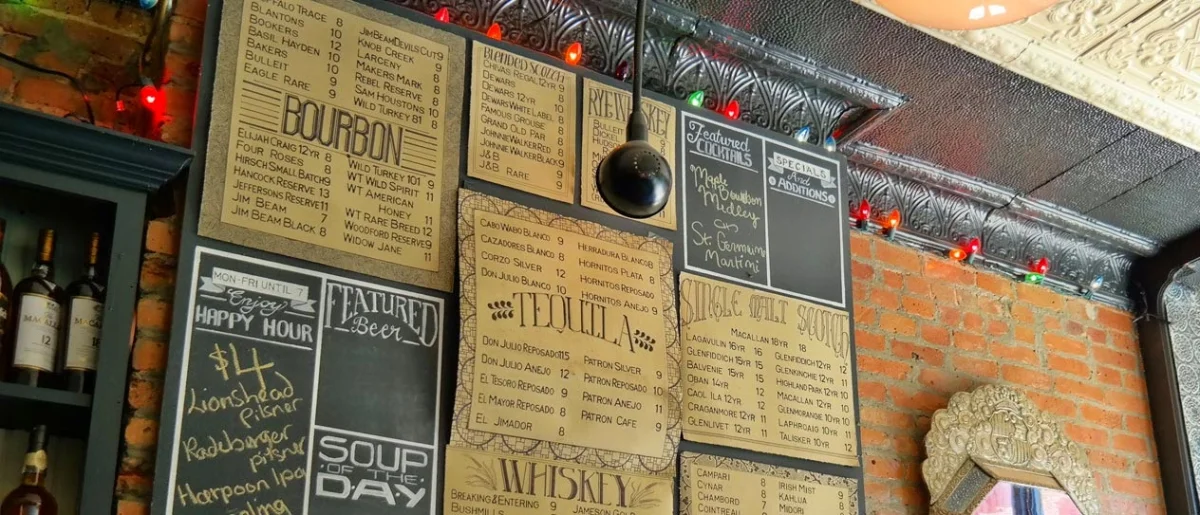 BUFFALO TRACE 8
BLANTONS 10
BOOKERS 12
BASIL HAYDEN 10
BAKERS 10
BULLEIT 9
EAGLE RARE 9
JIM BEAM DEVILS CUT 9
KNOB CREEK 9
LARCENY 8
MAKERS MARK 8
REBEL RESERVE 8
SAM HOUSTONS 10
WILD TURKEY 81 8
BOURBON
ELIJAH CRAIG 12YR 8
FOUR ROSES 8
HIRSCH SMALL BATCH 9
HANCOCK RESERVE 13
JEFFERSONS RESERVE 11
JIM BEAM 7
JIM BEAM BLACK 8
WILD TURKEY 101 9
WT WILD SPIRIT 11
WT AMERICAN
HONEY 11
WT RARE BREED 12
WOODFORD RESERVE 9
WIDOW JANE 11
BLENDED SCOTCH
CHIVAS REGAL 12YR 9
DEWARS 8
DEWARS 12YR 10
DEWARS WHITE LABEL 8
FAMOUS GROUSE 8
GRAND OLD PAR 8
JOHNNIE WALKER RED 8
JOHNNIE WALKER BLACK 9
J&B 8
J&B RARE 9
RYE WHISKEY
BULLEIT
Featured
COCKTAILS
Maple Bourbon
Medley
St. Germain
Martini
SPECIALS
And
ADDITIONS
MON-FRI UNTIL 7
Enjoy
HAPPY HOUR
$4
Lionshead
Pilsner
Radeburger
pilsner
Harpoon Ipa
FEATURED
Beer
SOUP
OF THE
DAY
CABO WABO BLANCO 9
CAZADORES BLANCO 8
CORZO SILVER 12
DON JULIO BLANCO 10
HERRADURA BLANCO 8
HORNITOS PLATA 8
HORNITOS REPOSADO
HORNITOS ANEJO 9
TEQUILA
DON JULIO REPOSADO 115
DON JULIO ANEJO 12
EL TESORO REPOSADO 9
EL MAYOR REPOSADO 8
EL JIMADOR 8
PATRON SILVER 9
PATRON REPOSADO 10
PATRON ANEJO 11
PATRON CAFE 9
SINGLE MALT SCOTCH
MACALLAN 18YR 18
LAGAVULIN 16YR 16
GLENFIDDICH 15YR 15
BALVENIE 15YR 15
OBAN 14YR 14
CAOL ILA 12YR 12
CRAGANMORE 12YR 12
GLENLIVET 12YR 11
GLENFIDDICH 12YR 12
GLENKINCHIE 12YR 11
HIGHLAND PARK 12YR
MACALLAN 12YR
GLENMORANGIE 10YR
LAPHROAIG 10YR
TALISKER 10YR 12
WHISKEY
BREAKING & ENTERING 9
BUSHMILLS
JAMESON GOLD
CAMPARI 8
CYNAR 8
CHAMBORD 7
COINTREAU
IRISH MIST 9
KAHLUA 8
MIDORI